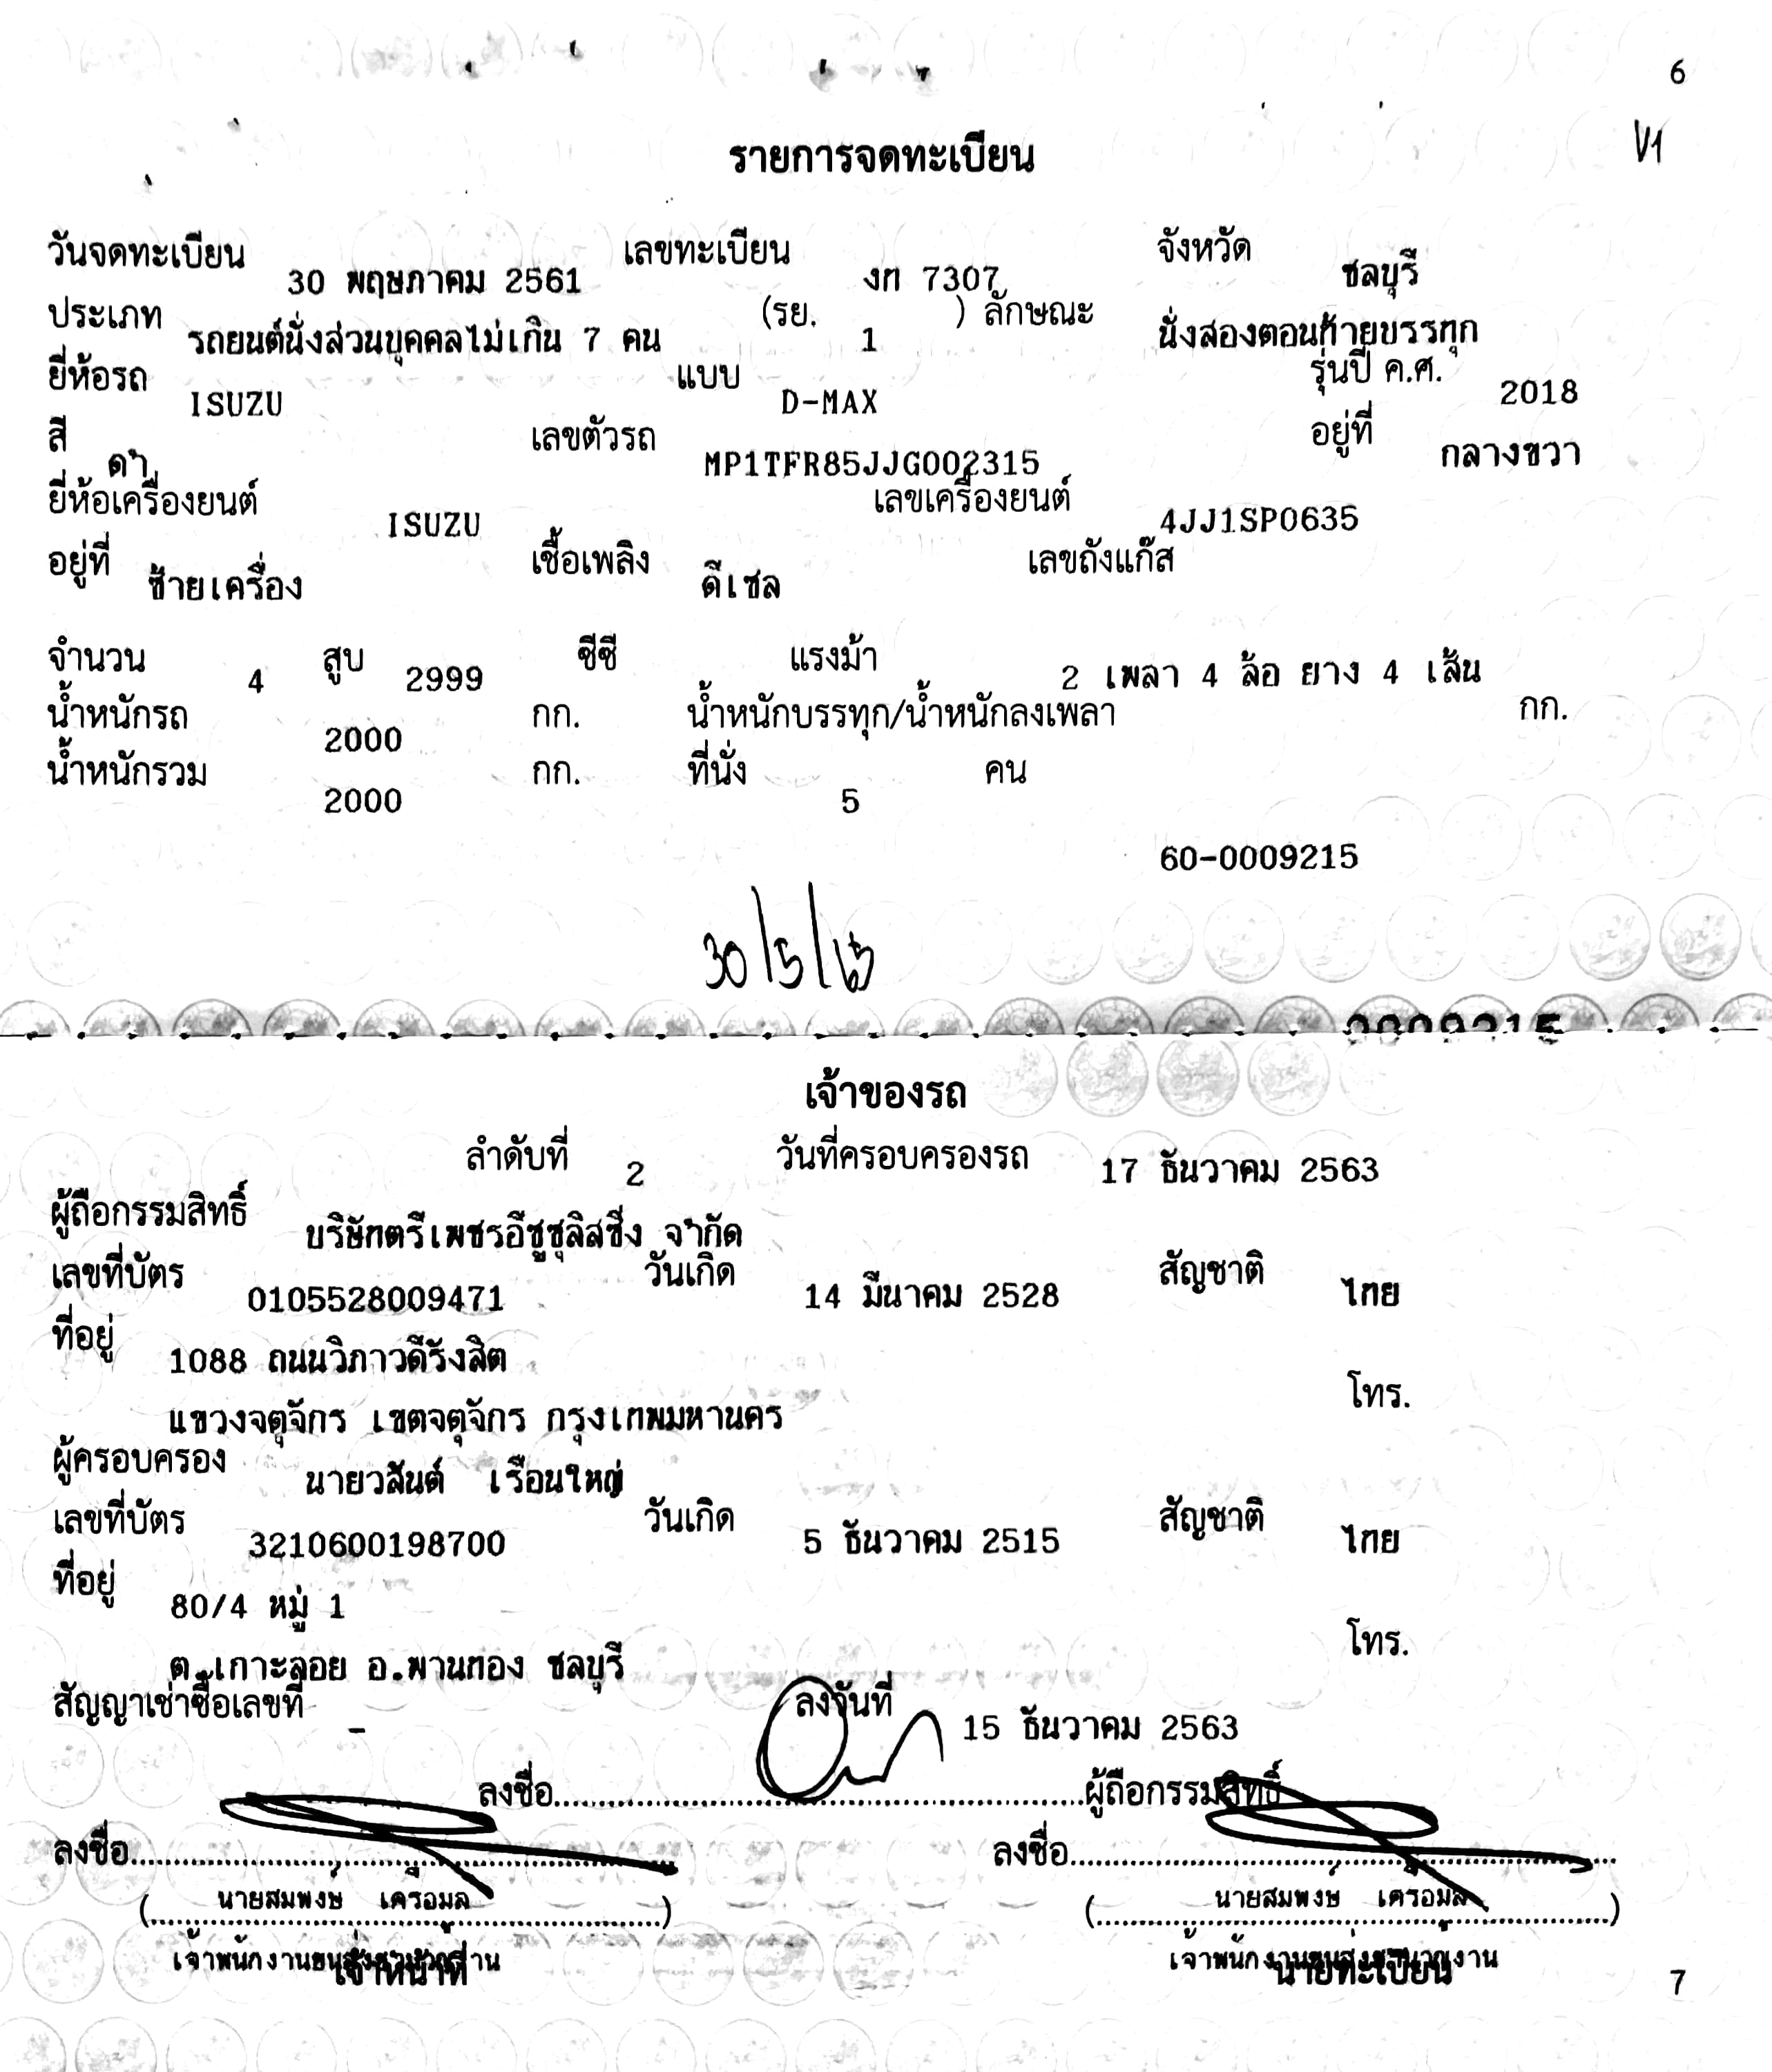 6
V1
รายการจดทะเบียน
วันจดทะเบียน 30 พฤษภาคม 2561 เลขทะเบียน งก 7307 จังหวัด ชลบุรี
ประเภท รถยนต์นั่งส่วนบุคคลไม่เกิน 7 คน (รย. 1 ) ลักษณะ นั่งสองตอนท้ายบรรทุก
ยี่ห้อรถ ISUZU แบบ D-MAX รุ่นปี ค.ศ. 2018
สี ดำ เลขตัวรถ MP1TFR85JJG002315 อยู่ที่ กลางขวา
ยี่ห้อเครื่องยนต์ ISUZU เลขเครื่องยนต์ 4JJ1SP0635
อยู่ที่ ซ้ายเครื่อง เชื้อเพลิง ดีเซล เลขถังแก๊ส
จำนวน 4 สูบ 2999 ซีซี แรงม้า 2 เพลา 4 ล้อ ยาง 4 เส้น
น้ำหนักรถ 2000 กก. น้ำหนักบรรทุก/น้ำหนักลงเพลา กก.
น้ำหนักรวม 2000 กก. ที่นั่ง 5 คน
60-0009215
30/5/65
0009215
เจ้าของรถ
ลำดับที่ 2 วันที่ครอบครองรถ 17 ธันวาคม 2563
ผู้ถือกรรมสิทธิ์ บริษัทตรีเพชรอีซูซุลิสซิ่ง จำกัด
เลขที่บัตร 0105528009471 วันเกิด 14 มีนาคม 2528 สัญชาติ ไทย
ที่อยู่ 1088 ถนนวิภาวดีรังสิต
แขวงจตุจักร เขตจตุจักร กรุงเทพมหานคร โทร.
ผู้ครอบครอง นายวสันต์ เรือนใหญ่
เลขที่บัตร 3210600198700 วันเกิด 5 ธันวาคม 2515 สัญชาติ ไทย
ที่อยู่ 80/4 หมู่ 1
ต.เกาะลอย อ.พานทอง ชลบุรี โทร.
สัญญาเช่าซื้อเลขที่ - ลงวันที่ 15 ธันวาคม 2563
ลงชื่อ ผู้ถือกรรมสิทธิ์
ลงชื่อ ลงชื่อ
( นายสมพงษ์ เครือมูล ) ( นายสมพงษ์ เครือมูล )
เจ้าพนักงานขนส่งชำนาญงาน เจ้าพนักงานขนส่งชำนาญงาน
เจ้าหน้าที่ นายทะเบียน
7